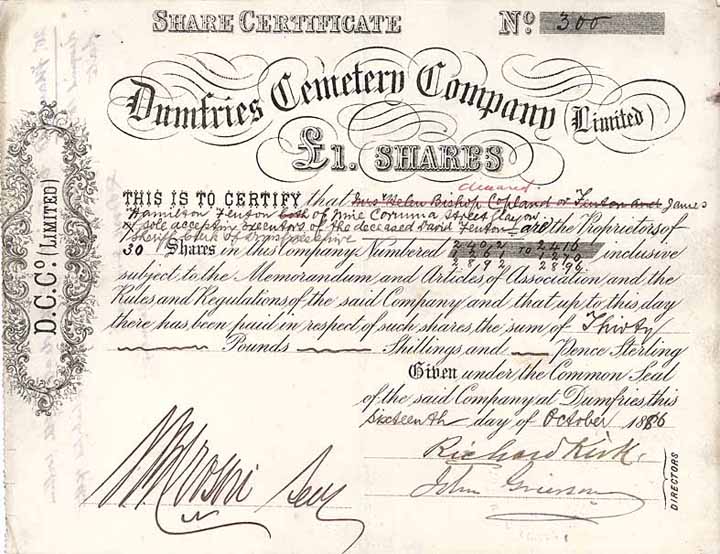 SHARE CERTIFICATE Nº 300
Dumfries Cemetery Company (Limited)
£1. SHARES
deceased.
THIS IS TO CERTIFY that Mrs Helen Bishop Copland or Fenton and James
Hamilton Fenton both of nine Corunna Street Glasgow
sole accepting executors of the deceased David Fenton are the Proprietors of
Sheriff Clerk of Dumfriesshire
30 Shares in this Company Numbered 2402 TO 2416 inclusive
1261 1270
2892 2896
subject to the Memorandum and Articles of Association and the
Rules and Regulations of the said Company and that up to this day
there has been paid in respect of such shares, the sum of Thirty
Pounds Shillings and Pence Sterling
Given under the Common Seal
of the said Company at Dumfries, this
sixteenth day of October 1886
Richard Kirk.
John Grierson
DIRECTORS
Secy
D.C.Cº (LIMITED)